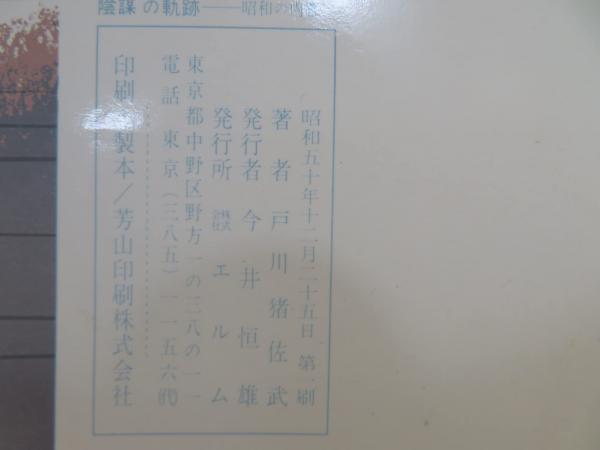 陰謀の軌跡――昭和の内
昭和五十年十二月二十五日 第一刷
著者 戸川猪佐武
発行者 今井恒雄
発行所 株式会社 エルム
東京都中野区野方一の三八の一一
電話 東京(三八五)一一五六㈹
印刷 製本/芳山印刷株式会社